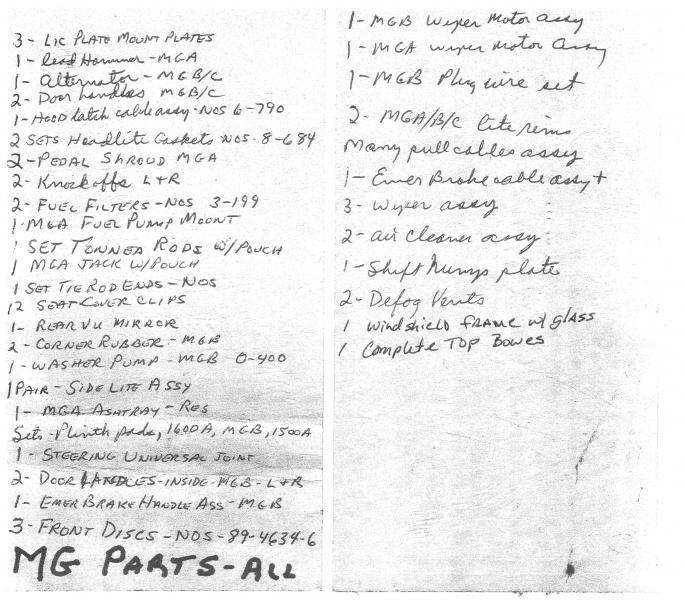 3 - LIC PLATE MOUNT PLATES
1 - lead Hammer - MGA
1 - Alternator - MGB/C
2 - Door handles MGB/C
1 - HOOD latch cable assy - NOS 6-790
2 SETS Headlite Gaskets NOS - 8-684
2 - PEDAL SHROUD MGA
2 - Knockoffs L+R
2 - FUEL FILTERS - NOS 3-199
1 - MGA FUEL PUMP MOUNT
1 SET TONNEA RODS W/POUCH
1 MGA JACK W/POUCH
1 SET TIE ROD ENDS - NOS
12 SEAT COVER CLIPS
1 - REAR VU MIRROR
2 - CORNER RUBBER - MGB
1 - WASHER PUMP - MGB 0-400
1 PAIR - SIDE LITE ASSY
1 - MGA ASHTRAY - RES
Sets - Plinth pads, 1600A, MGB, 1500A
1 - STEERING UNIVERSAL JOINT
2 - DOOR HANDLES - INSIDE - MGB - L+R
1 - EMER BRAKE HANDLE ASS - MGB
3 - FRONT DISCS - NOS - 89-4634-6
MG PARTS - ALL
1 - MGB Wiper Motor assy
1 - MGA wiper motor assy
1 - MGB Plug wire set
2 - MGA/B/C lite rims
Many pull cables assy
1 - Emer Brake cable assy +
3 - Wiper assy
2 - air cleaner assy
1 - Shift plate
2 - Defog Vents
1 windshield FRAME w/ glass
1 Complete TOP BOWES